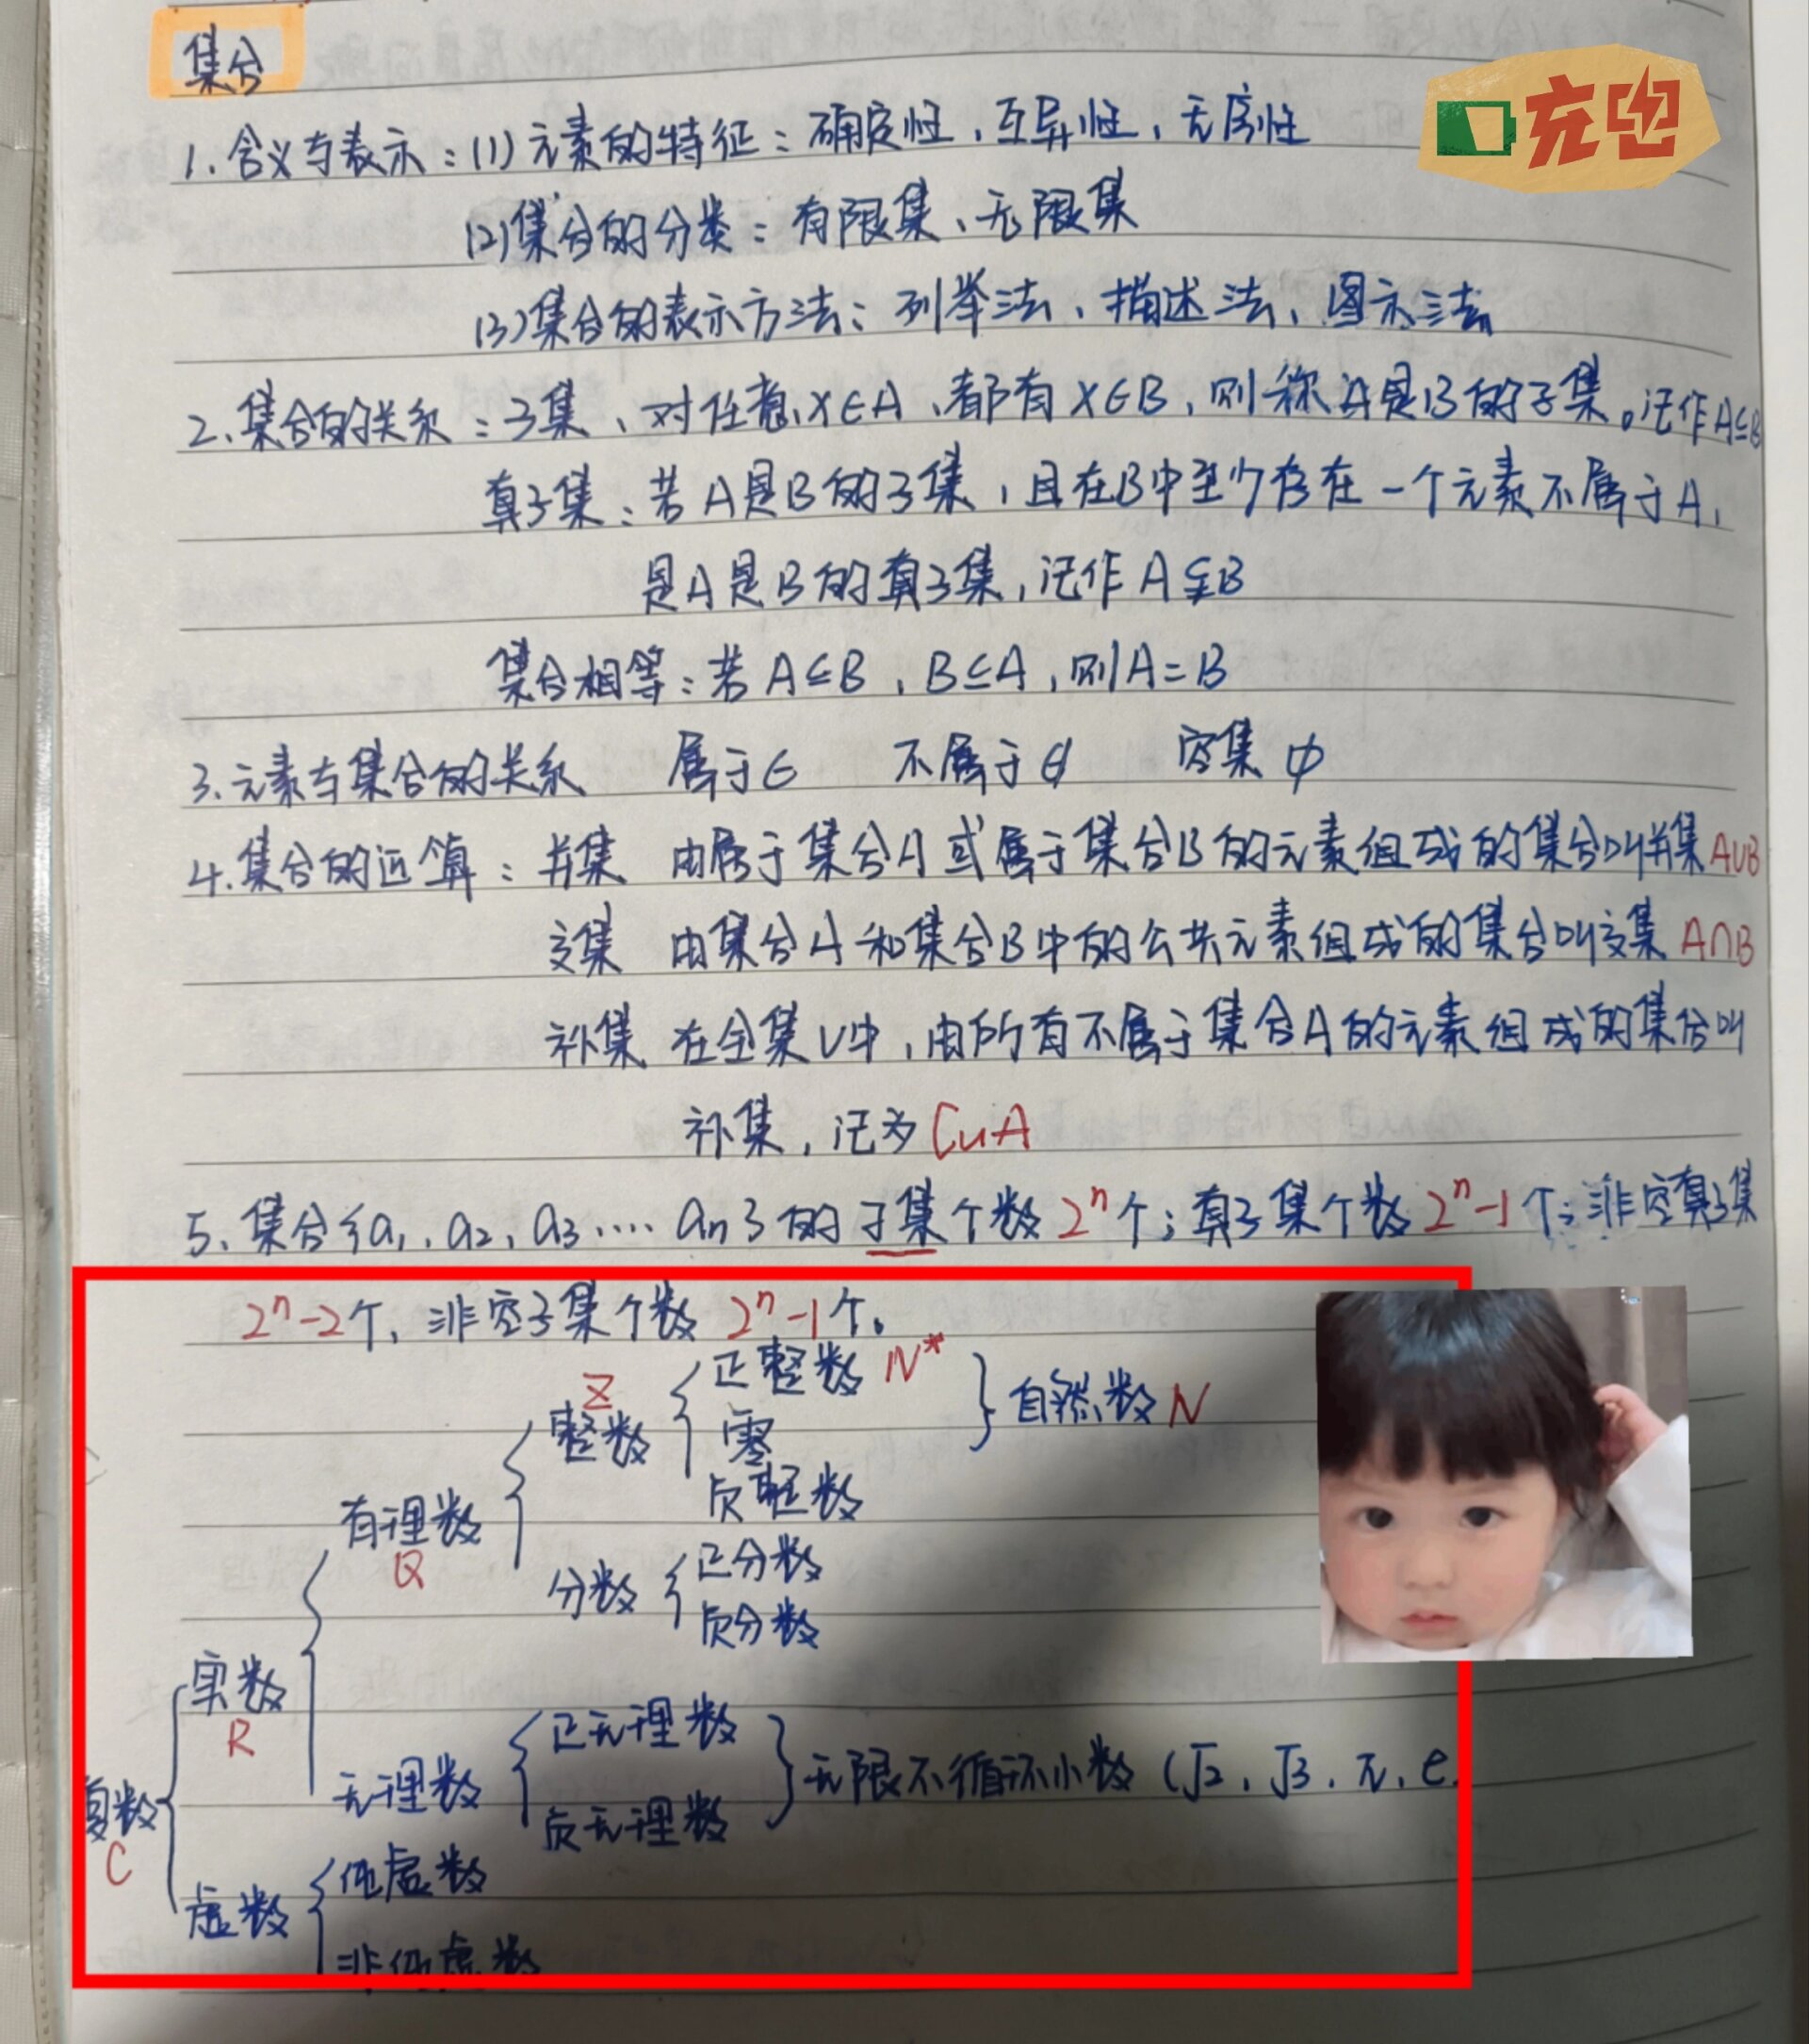 集合
充电
1.含义与表示:(1)元素的特征:确定性、互异性、无序性
(2)集合的分类:有限集、无限集
(3)集合的表示方法:列举法、描述法、图示法
2.集合的关系:子集、对任意x∈A、都有x∈B,则称A是B的子集。记作A⊆B
真子集:若A是B的子集,且在B中至少存在一个元素不属于A,
是A是B的真子集,记作A⫋B
集合相等:若A⊆B,B⊆A,则A=B
3.元素与集合的关系 属于∈ 不属于∉ 空集 ϕ
4.集合的运算:并集 由属于集合A或属于集合B的元素组成的集合叫并集A∪B
交集 由集合A和集合B中的公共元素组成的集合叫交集A∩B
补集 在全集U中,由所有不属于集合A的元素组成的集合叫
补集,记为∁uA
5.集合{a₁、a₂、a₃....an}的子集个数2ⁿ个;真子集个数2ⁿ-1个;非空真子集
2ⁿ-2个、非空子集个数2ⁿ-1个。
正整数N*
自然数N
整数
Z
零
负整数
有理数
Q
正分数
分数
负分数
实数
R
正无理数
无理数
无限不循环小数(√2、√3、π、e
负无理数
复数
C
纯虚数
虚数
非纯虚数